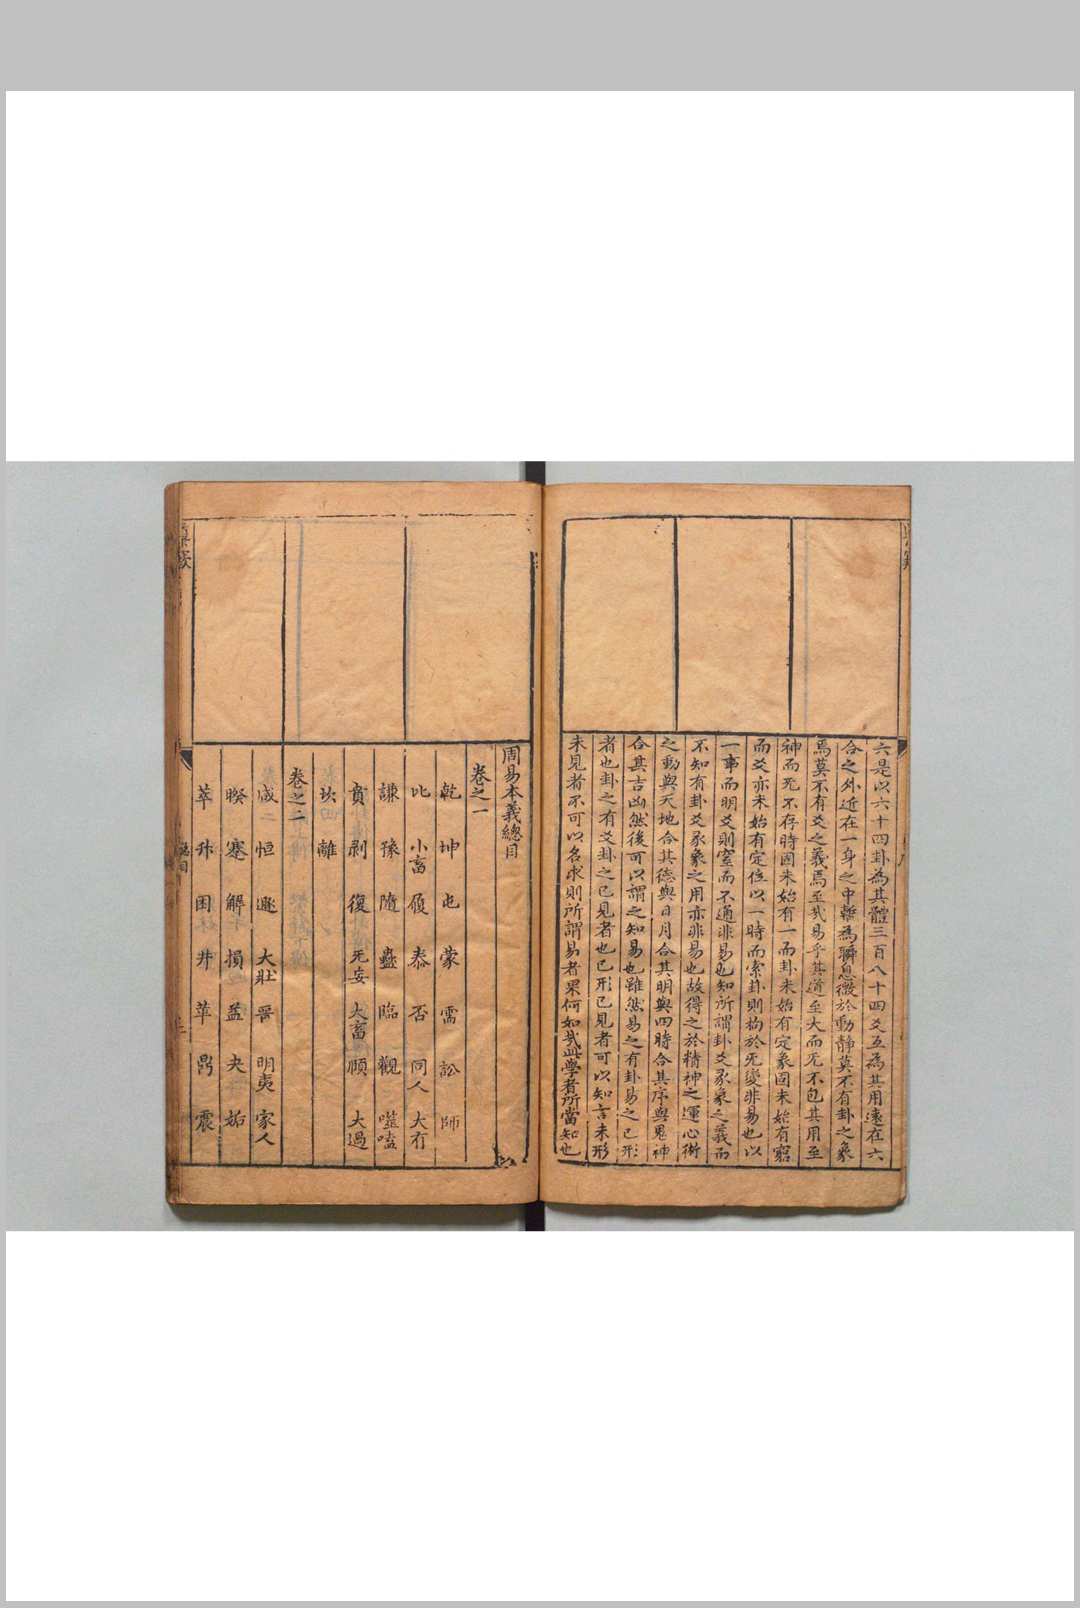 六是以六十四卦為其體三百八十四爻互為其用遠在六
合之外近在一身之中暫為瞬息微於動靜莫不有卦之象
焉莫不有爻之義焉至哉易乎其道至大而无不包其用至
神而无不存時固未始有一而卦未始有定象固未始有窮
而爻亦未始有定位以一時而索卦則拘於无變非易也以
一事而明爻則窒而不通非易也知所謂卦爻彖象之義而
不知有卦爻彖象之用亦非易也故得之於精神之運心術
之動與天地合其德與日月合其明與四時合其序與鬼神
合其吉凶然後可以謂之知易也雖然易之有卦易之已形
者也卦之有爻卦之已見者也已形已見者可以知言未形
未見者不可以名求則所謂易者果何如哉此學者所當知也
周易本義總目
卷之一
乾 坤 屯 蒙 需 訟 師
比 小畜 履 泰 否 同人 大有
謙 豫 隨 蠱 臨 觀 噬嗑
賁 剥 復 无妄 大畜 頤 大過
坎 離
卷之二
咸 恒 遯 大壯 晉 明夷 家人
睽 蹇 解 損 益 夬 姤
萃 升 困 井 革 鼎 震
總目